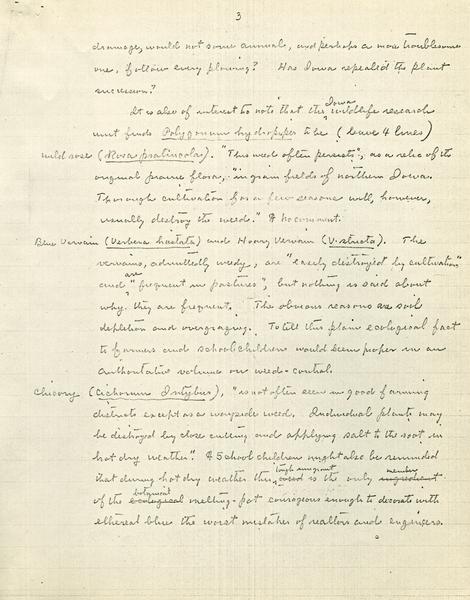 3
drainage, would not some annual, and perhaps a more troublesome
one, follow every plowing? Has Iowa repealed the plant
succession?
It is also of interest to note that the Iowa wildlife research
unit finds Polygonum hydropiper to be (leave 4 lines)
wild rose (Rosa pratincola). "This weed often persists", as a relic of the
original prairie flora, "in grain fields of northern Iowa.
Thorough cultivation for a few seasons will, however,
usually destroy the weed." # No comment.
Blue Vervain (Verbena hastata) and Hoary Vervain (V. stricta). The
vervains, admittedly weedy, are "easily destroyed by cultivation"
and are "frequent in pastures", but nothing is said about
why they are frequent. The obvious reasons are soil
depletion and overgrazing. To tell this plain ecological fact
to farmers and school children would seem proper in an
authoritative volume on weed-control.
Chicory (Cichorium Intybus), "is not often seen in good farming
districts except as a wayside weed. Individual plants may
be destroyed by close cutting and applying salt to the root in
hot dry weather". # School children might also be reminded
that during hot dry weather this tough immigrant weed is the only member ingredient
of the botanical ecological melting-pot courageous enough to decorate with
ethereal blue the worst mistakes of realtors and engineers.